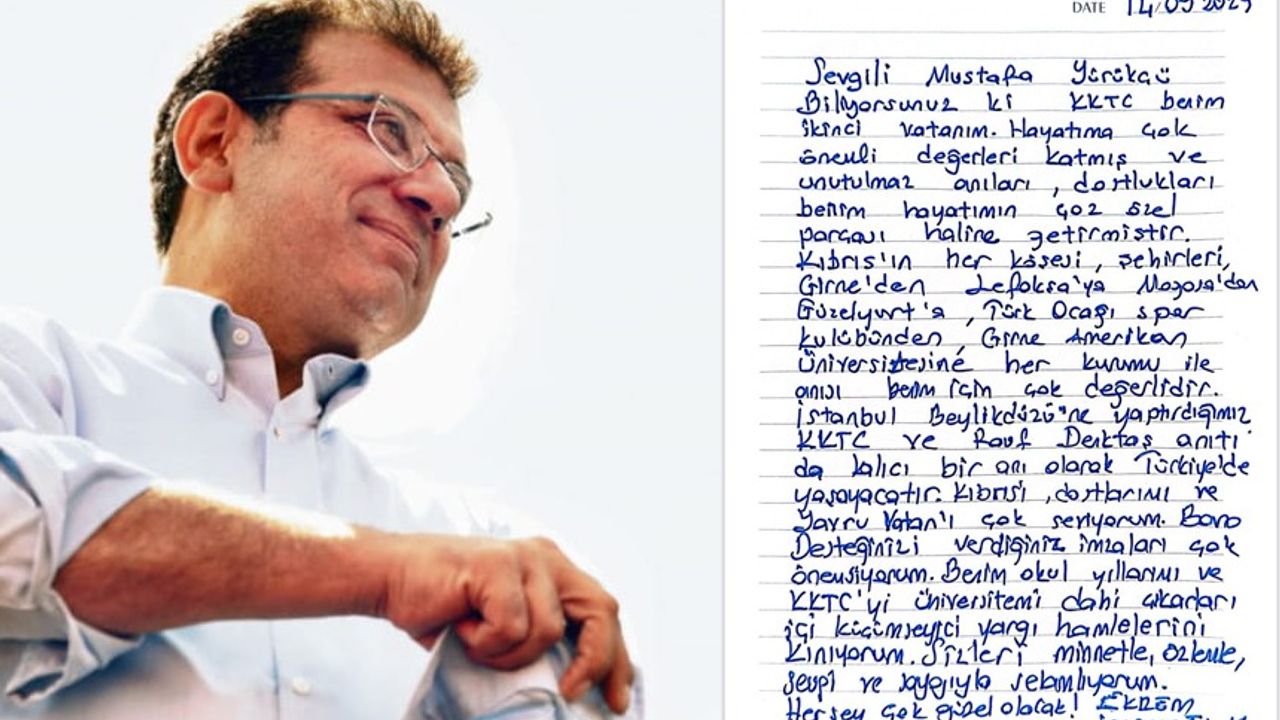 DATE 14/09 2025
Sevgili Mustafa Yürükçü
Biliyorsunuz ki KKTC benim
ikinci vatanım. Hayatıma çok
önemli değerleri katmış ve
unutulmaz anıları, dostlukları
benim hayatımın çoz özel
parçası haline getirmiştir.
Kıbrıs'ın her köşesi, şehirleri,
Girne'den Lefkoşa'ya Magosa'dan
Güzelyurt'a, Türk Ocağı spor
kulübünden, Girne Amerikan
Üniversitesine her kurumu ile
anısı benim için çok değerlidir.
İstanbul Beylikdüzü'ne yaptırdığımız
KKTC ve Rauf Denktaş anıtı
da kalıcı bir anı olarak Türkiye'de
yaşayacaktır. Kıbrıs'ı, dostlarımı ve
Yavru Vatan'ı çok seviyorum. Bana
Desteğinizi verdiğiniz imzaları çok
önemsiyorum. Benim okul yıllarımı ve
KKTC'yi üniversitemi dahi çıkarları
içi küçümseyici yargı hamlelerini
kınıyorum. Sizleri minnetle, özlemle,
sevgi ve saygıyla selamlıyorum.
Herşey çok güzel olacak! EKREM